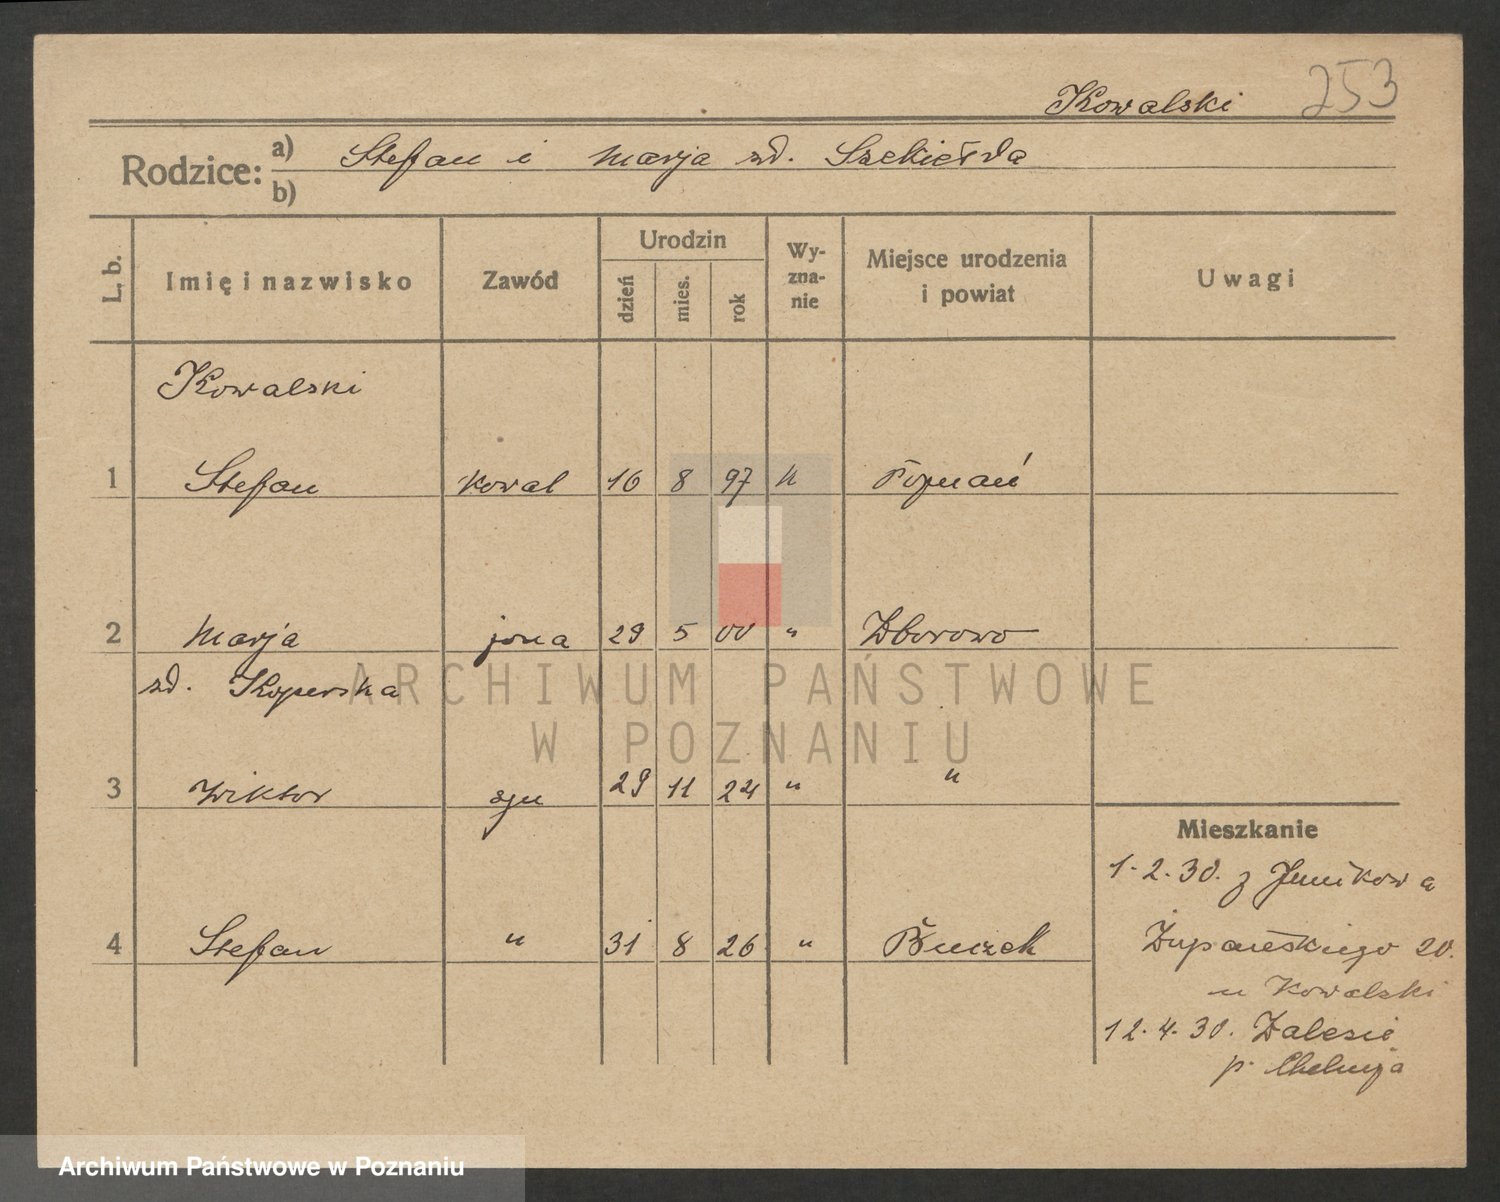 Kowalski 253
Rodzice: a) Stefan i Marja zd. Szekiełda
b)
L. b. Imię i nazwisko Zawód Urodzin dzień mies. rok Wyznanie Miejsce urodzenia i powiat Uwagi
Kowalski
1 Stefan kowal 16 8 97 k Poznań
2 Marja żona 29 5 00 " Zborowo
zd. Koperska
3 Wiktor syn 29 11 24 " "
Mieszkanie
1.2.30. z Junikowa
4 Stefan " 31 8 26 " Buczek
Żupańskiego 20.
u Kowalski
12.4.30. Zalesie
p.
ARCHIWUM PAŃSTWOWE
W POZNANIU
Archiwum Państwowe w Poznaniu